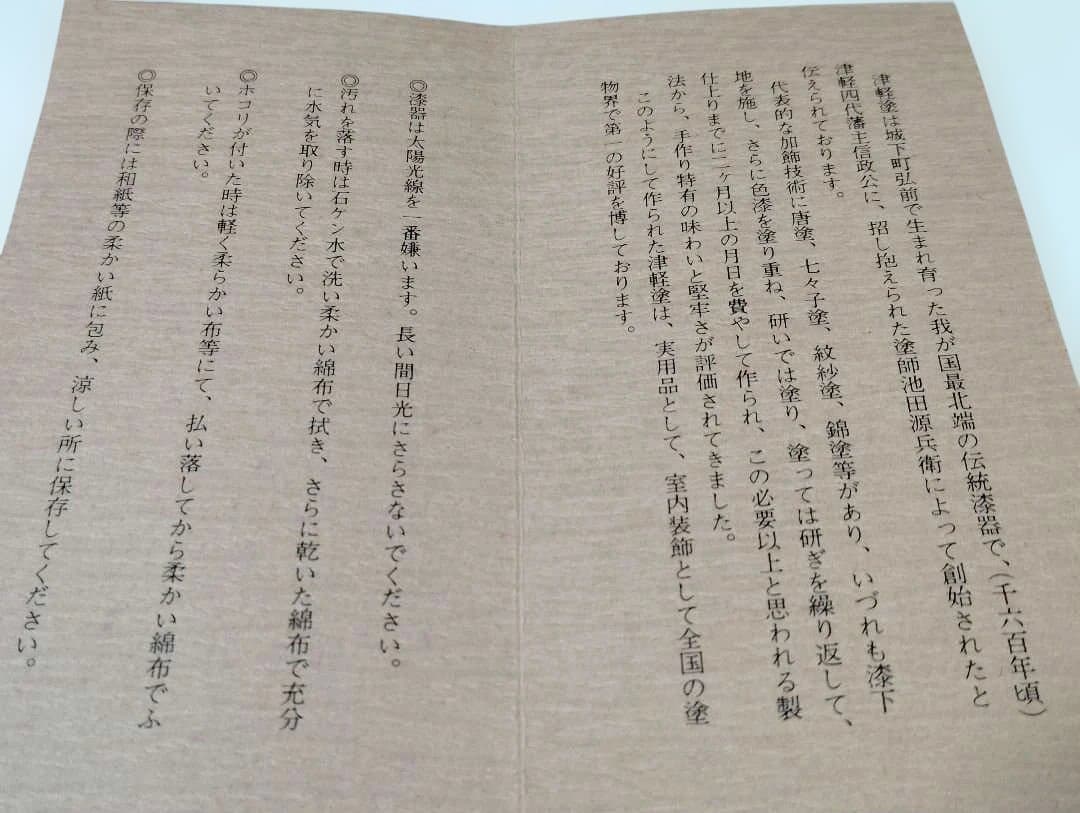 津軽塗は城下町弘前で生まれ育った我が国最北端の伝統漆器で、(千六百年頃)
津軽四代藩主信政公に、招し抱えられた塗師池田源兵衛によって創始されたと
伝えられております。
代表的な加飾技術に唐塗、七々子塗、紋紗塗、錦塗等があり、いづれも漆下
地を施し、さらに色漆を塗り重ね、研いでは塗り、塗っては研ぎを繰り返して、
仕上りまでに二ヶ月以上の月日を費やして作られ、この必要以上と思われる製
法から、手作り特有の味わいと堅牢さが評価されてきました。
このようにして作られた津軽塗は、実用品として、室内装飾として全国の塗
物界で第一の好評を博しております。
◎漆器は太陽光線を一番嫌います。長い間日光にさらさないでください。
◎汚れを落す時は石ケン水で洗い柔かい綿布で拭き、さらに乾いた綿布で充分
に水気を取り除いてください。
◎ホコリが付いた時は軽く柔らかい布等にて、払い落してから柔かい綿布でふ
いてください。
◎保存の際には和紙等の柔かい紙に包み、涼しい所に保存してください。